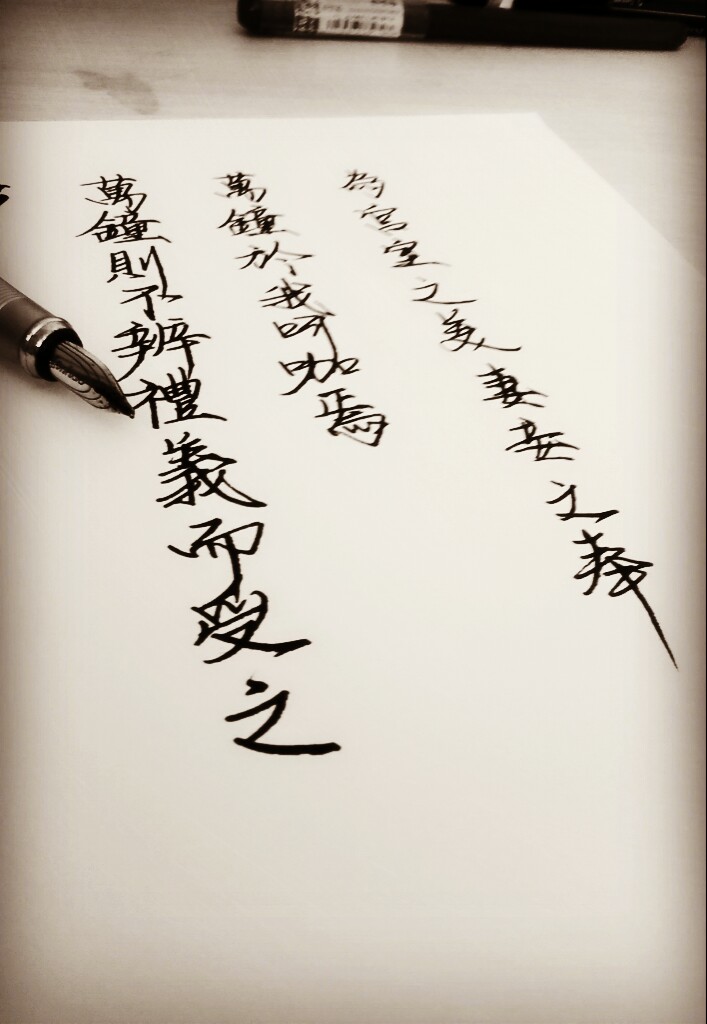 萬鐘則不辨禮義而受之
萬鐘於我呵咖焉
為宮室之美妻妾之奉